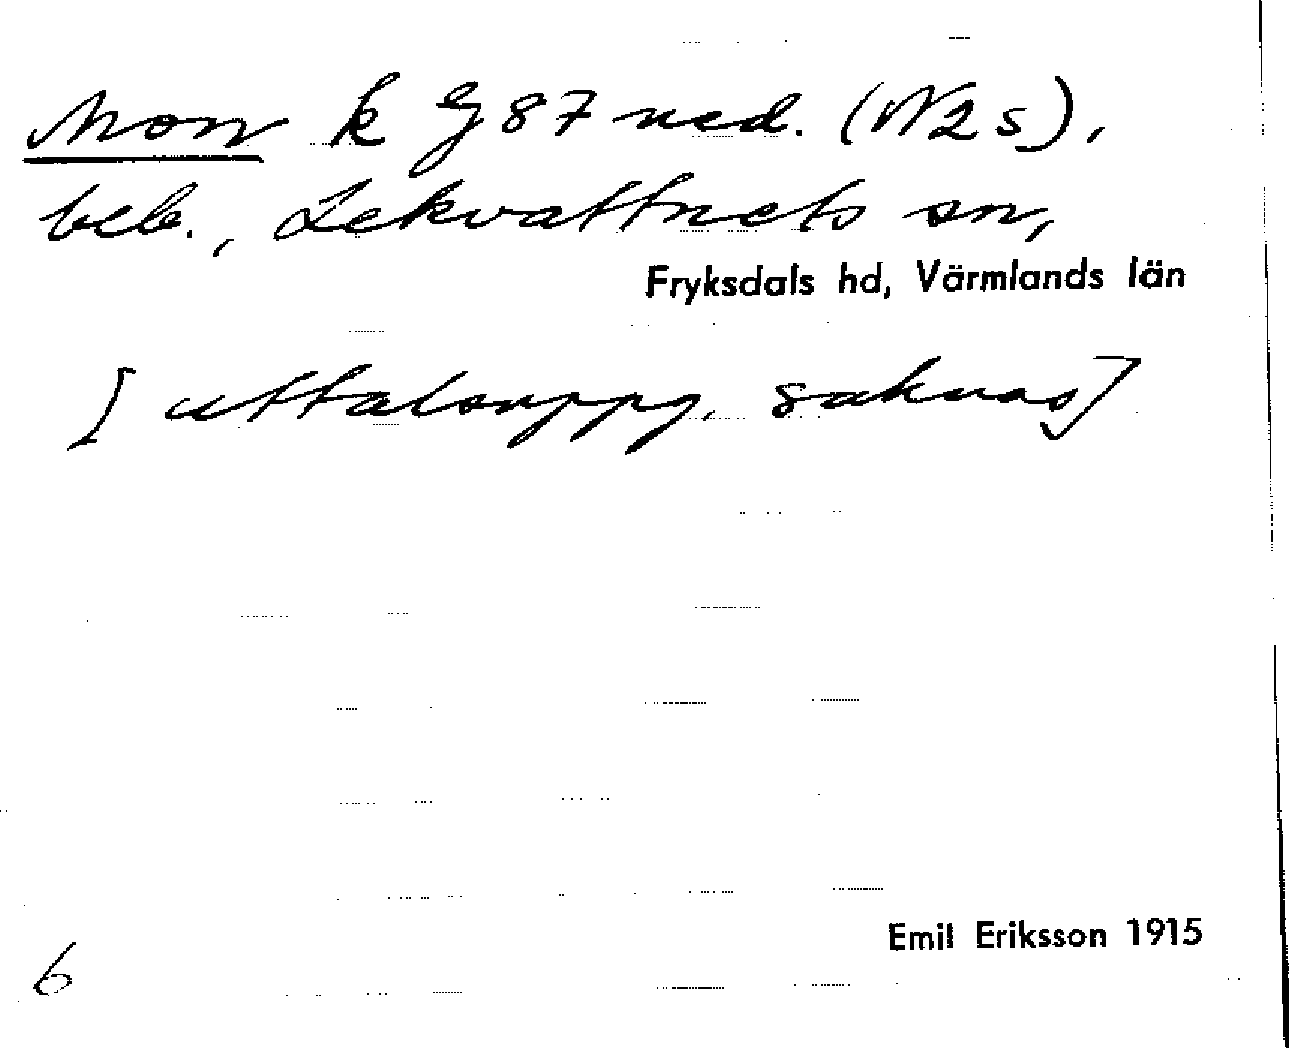 Mon k G 87 ned. (N2s),
beb., Lekvattnets sn,
Fryksdals hd, Värmlands län
[uttalsuppg. saknas]
Emil Eriksson 1915
6